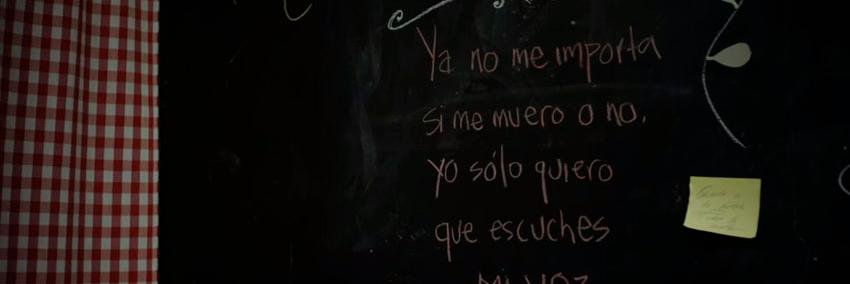 Ya no me importa
si me muero o no,
yo sólo quiero
que escuches
mi voz